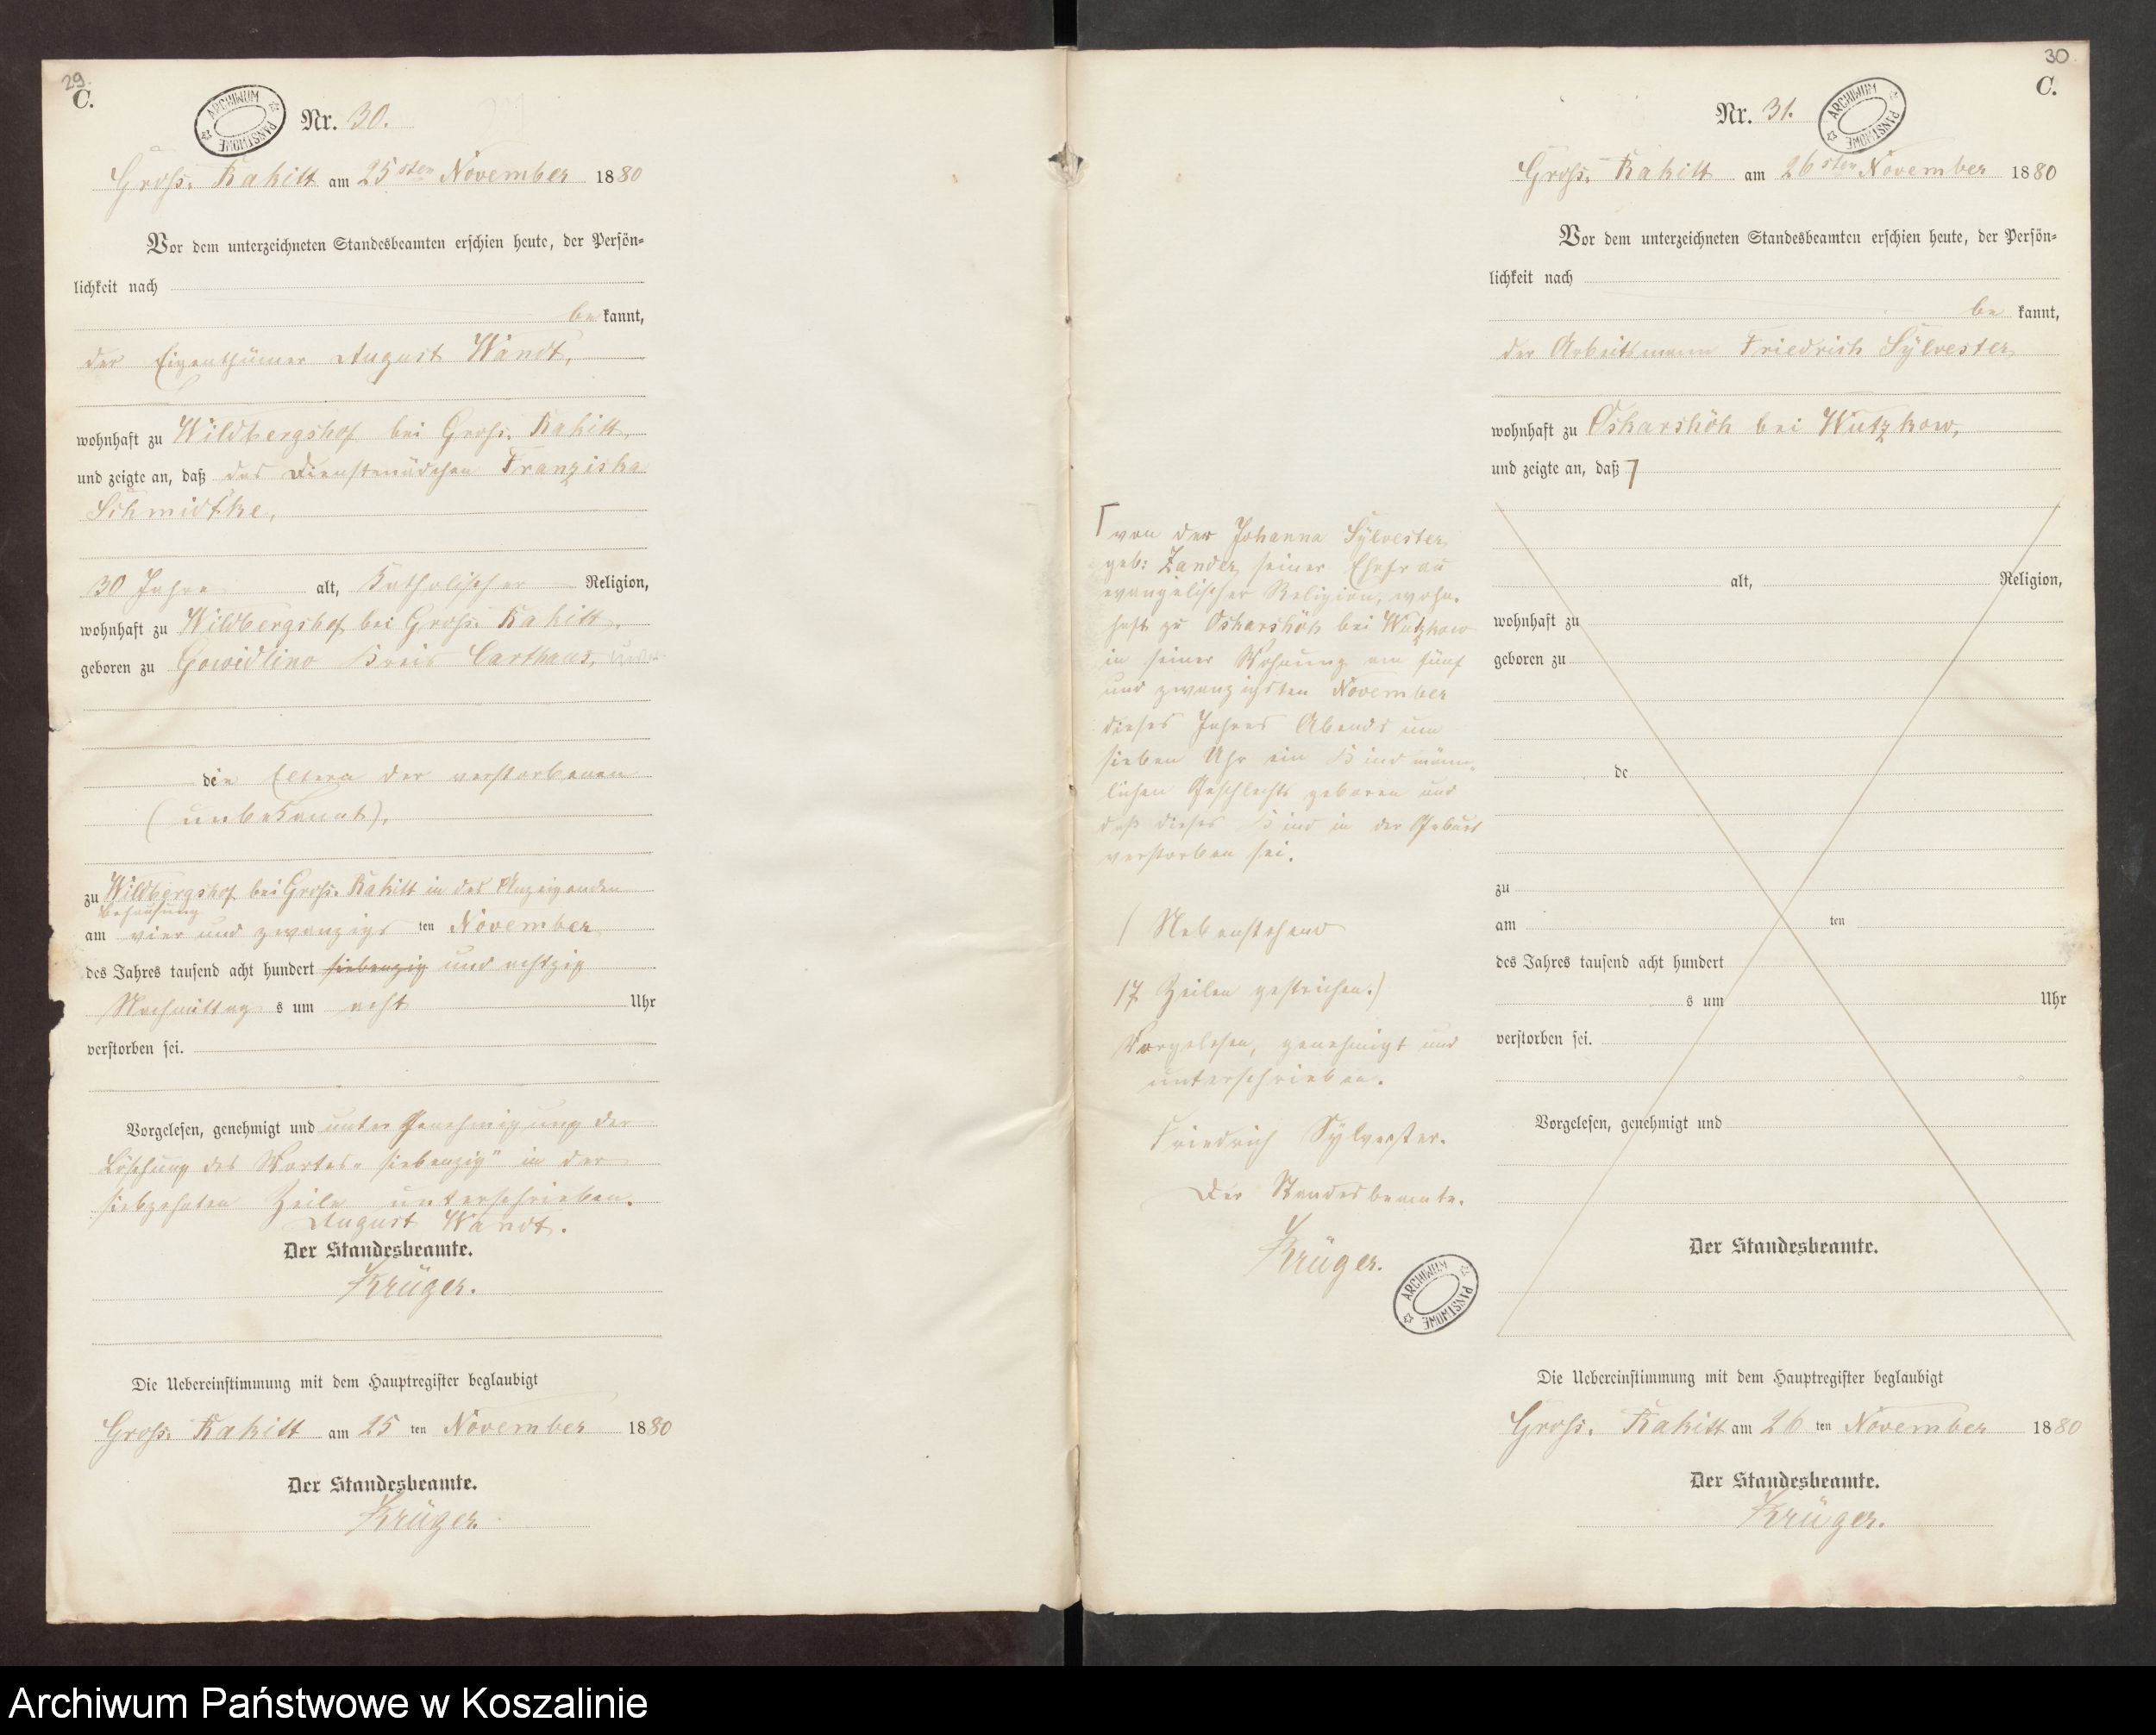 29.
C.
ARCHIWUM PAŃSTWOWE
Nr. 30.
Gross. Rakitt am 25sten November 1880
Vor dem unterzeichneten Standesbeamten erschien heute, der Persön-
lichkeit nach
be kannt,
der Eigenthümer August Wandt,
wohnhaft zu Wildbergshof bei Gross. Rakitt,
und zeigte an, daß das Dienstmädchen Franziska
Schmidtke,
30 Jahre alt, Katholischer Religion,
wohnhaft zu Wildbergshof bei Gross. Rakitt,
geboren zu Gowidlino Kreis Carthaus,
die Eltern der verstorbenen
(unbekannt),
zu Wildbergshof bei Gross. Rakitt in des Anzeigenden
Behausung
am vier und zwanzigs ten November
des Jahres tausend acht hundert siebenzig und achtzig
Nachmittag s um acht Uhr
verstorben sei.
Vorgelesen, genehmigt und unter Genehmigung der
Löschung des Wortes „siebenzig" in der
siebzehnten Zeile unterschrieben.
August Wandt.
Der Standesbeamte.
Krüger.
Die Uebereinstimmung mit dem Hauptregister beglaubigt
Gross. Rakitt am 25 ten November 1880
Der Standesbeamte.
Krüger.
30
C.
Nr. 31.
ARCHIWUM PAŃSTWOWE
Gross. Rakitt am 26sten November 1880
Vor dem unterzeichneten Standesbeamten erschien heute, der Persön-
lichkeit nach
be kannt,
der Arbeitsmann Friedrich Sylvester
wohnhaft zu Oskarshöh bei Wutzkow,
und zeigte an, daß
von der Johanna Sylvester
geb: Zander, seiner Ehefrau
evangelischer Religion, wohn-
haft zu Oskarshöh bei Wutzkow
in seiner Wohnung am fünf
und zwanzigsten November
dieses Jahres Abends um
sieben Uhr ein Kind männ-
lichen Geschlechts geboren und
daß dieses Kind in der Geburt
verstorben sei.
(Nebenstehend
17 Zeilen gestrichen.)
Vorgelesen, genehmigt und
unterschrieben.
Friedrich Sylvester.
Der Standesbeamte.
Krüger.
ARCHIWUM PAŃSTWOWE
alt, Religion,
wohnhaft zu
geboren zu
de
zu
am ten
des Jahres tausend acht hundert
s um Uhr
verstorben sei.
Vorgelesen, genehmigt und
Der Standesbeamte.
Die Uebereinstimmung mit dem Hauptregister beglaubigt
Gross. Rakitt am 26 ten November 1880
Der Standesbeamte.
Krüger.
Archiwum Państwowe w Koszalinie